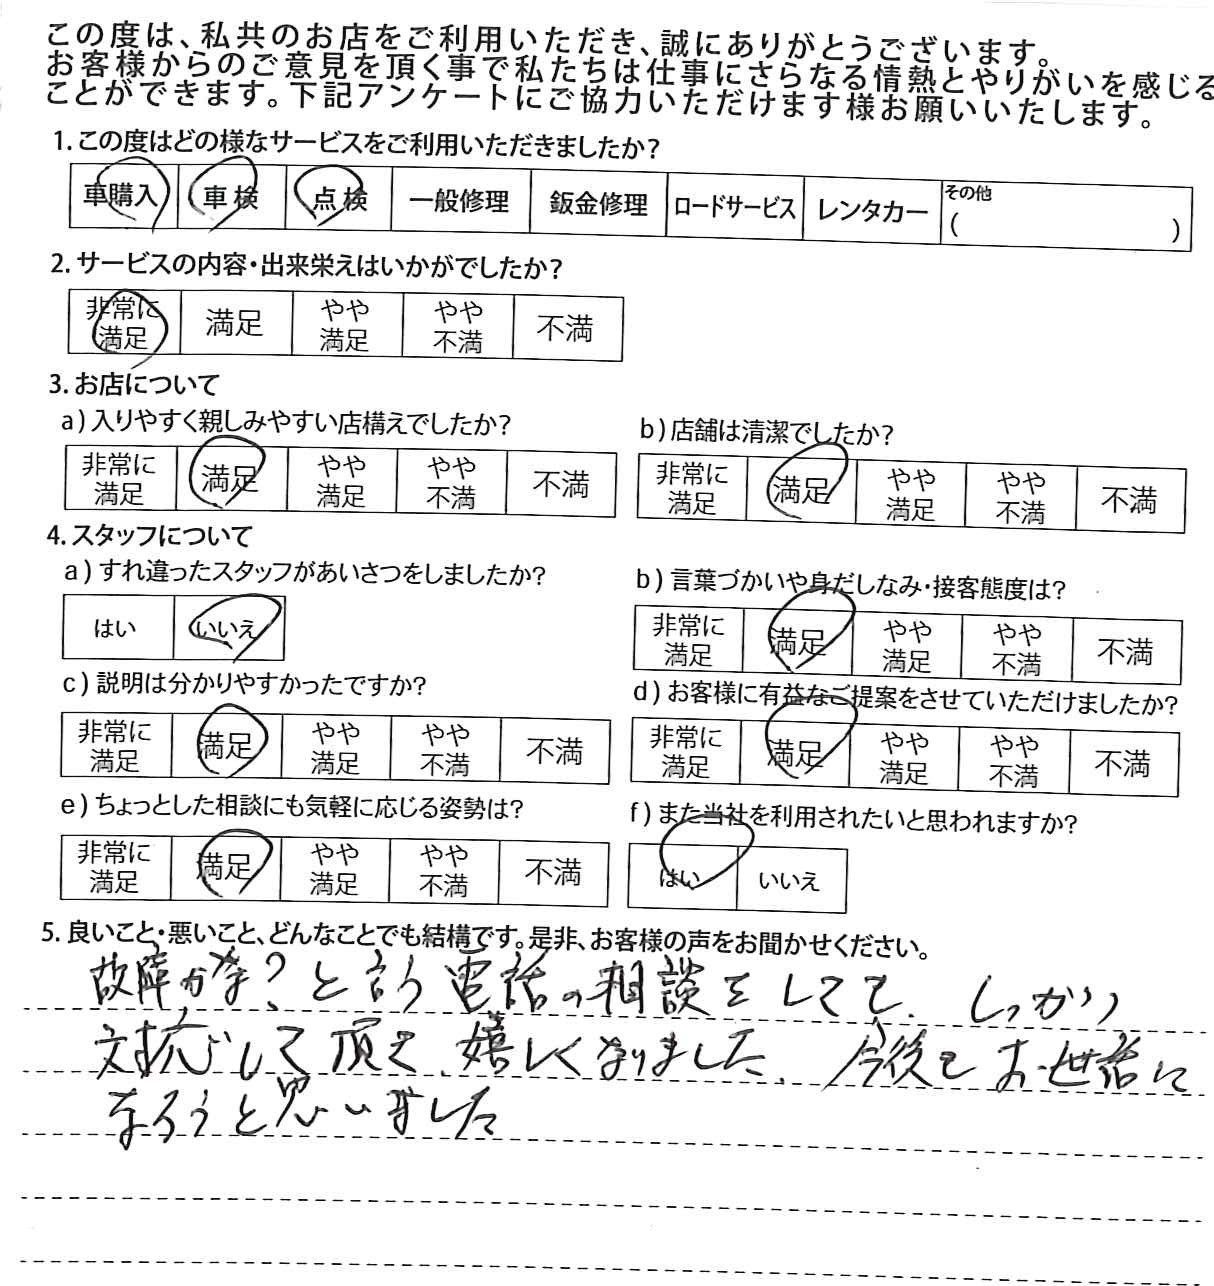 この度は、私共のお店をご利用いただき、誠にありがとうございます。
お客様からのご意見を頂く事で私たちは仕事にさらなる情熱とやりがいを感じる
ことができます。下記アンケートにご協力いただけます様お願いいたします。
1.この度はどの様なサービスをご利用いただきましたか?
車購入 車検 点検 一般修理 鈑金修理 ロードサービス レンタカー その他
( )
2.サービスの内容・出来栄えはいかがでしたか?
非常に 満足 やや やや 不満
満足 満足 不満
3.お店について
a)入りやすく親しみやすい店構えでしたか?
非常に 満足 やや やや 不満
満足 満足 不満
b)店舗は清潔でしたか?
非常に 満足 やや やや 不満
満足 満足 不満
4.スタッフについて
a)すれ違ったスタッフがあいさつをしましたか?
はい いいえ
b)言葉づかいや身だしなみ・接客態度は?
非常に 満足 やや やや 不満
満足 満足 不満
c)説明は分かりやすかったですか?
非常に 満足 やや やや 不満
満足 満足 不満
d)お客様に有益なご提案をさせていただけましたか?
非常に 満足 やや やや 不満
満足 満足 不満
e)ちょっとした相談にも気軽に応じる姿勢は?
非常に 満足 やや やや 不満
満足 満足 不満
f)また当社を利用されたいと思われますか?
はい いいえ
5.良いこと・悪いこと、どんなことでも結構です。是非、お客様の声をお聞かせください。
故障かな?と言う電話の相談をしても、しっかり
対応して頂き、嬉しくなりました、今後もお世話に
なろうと思いました